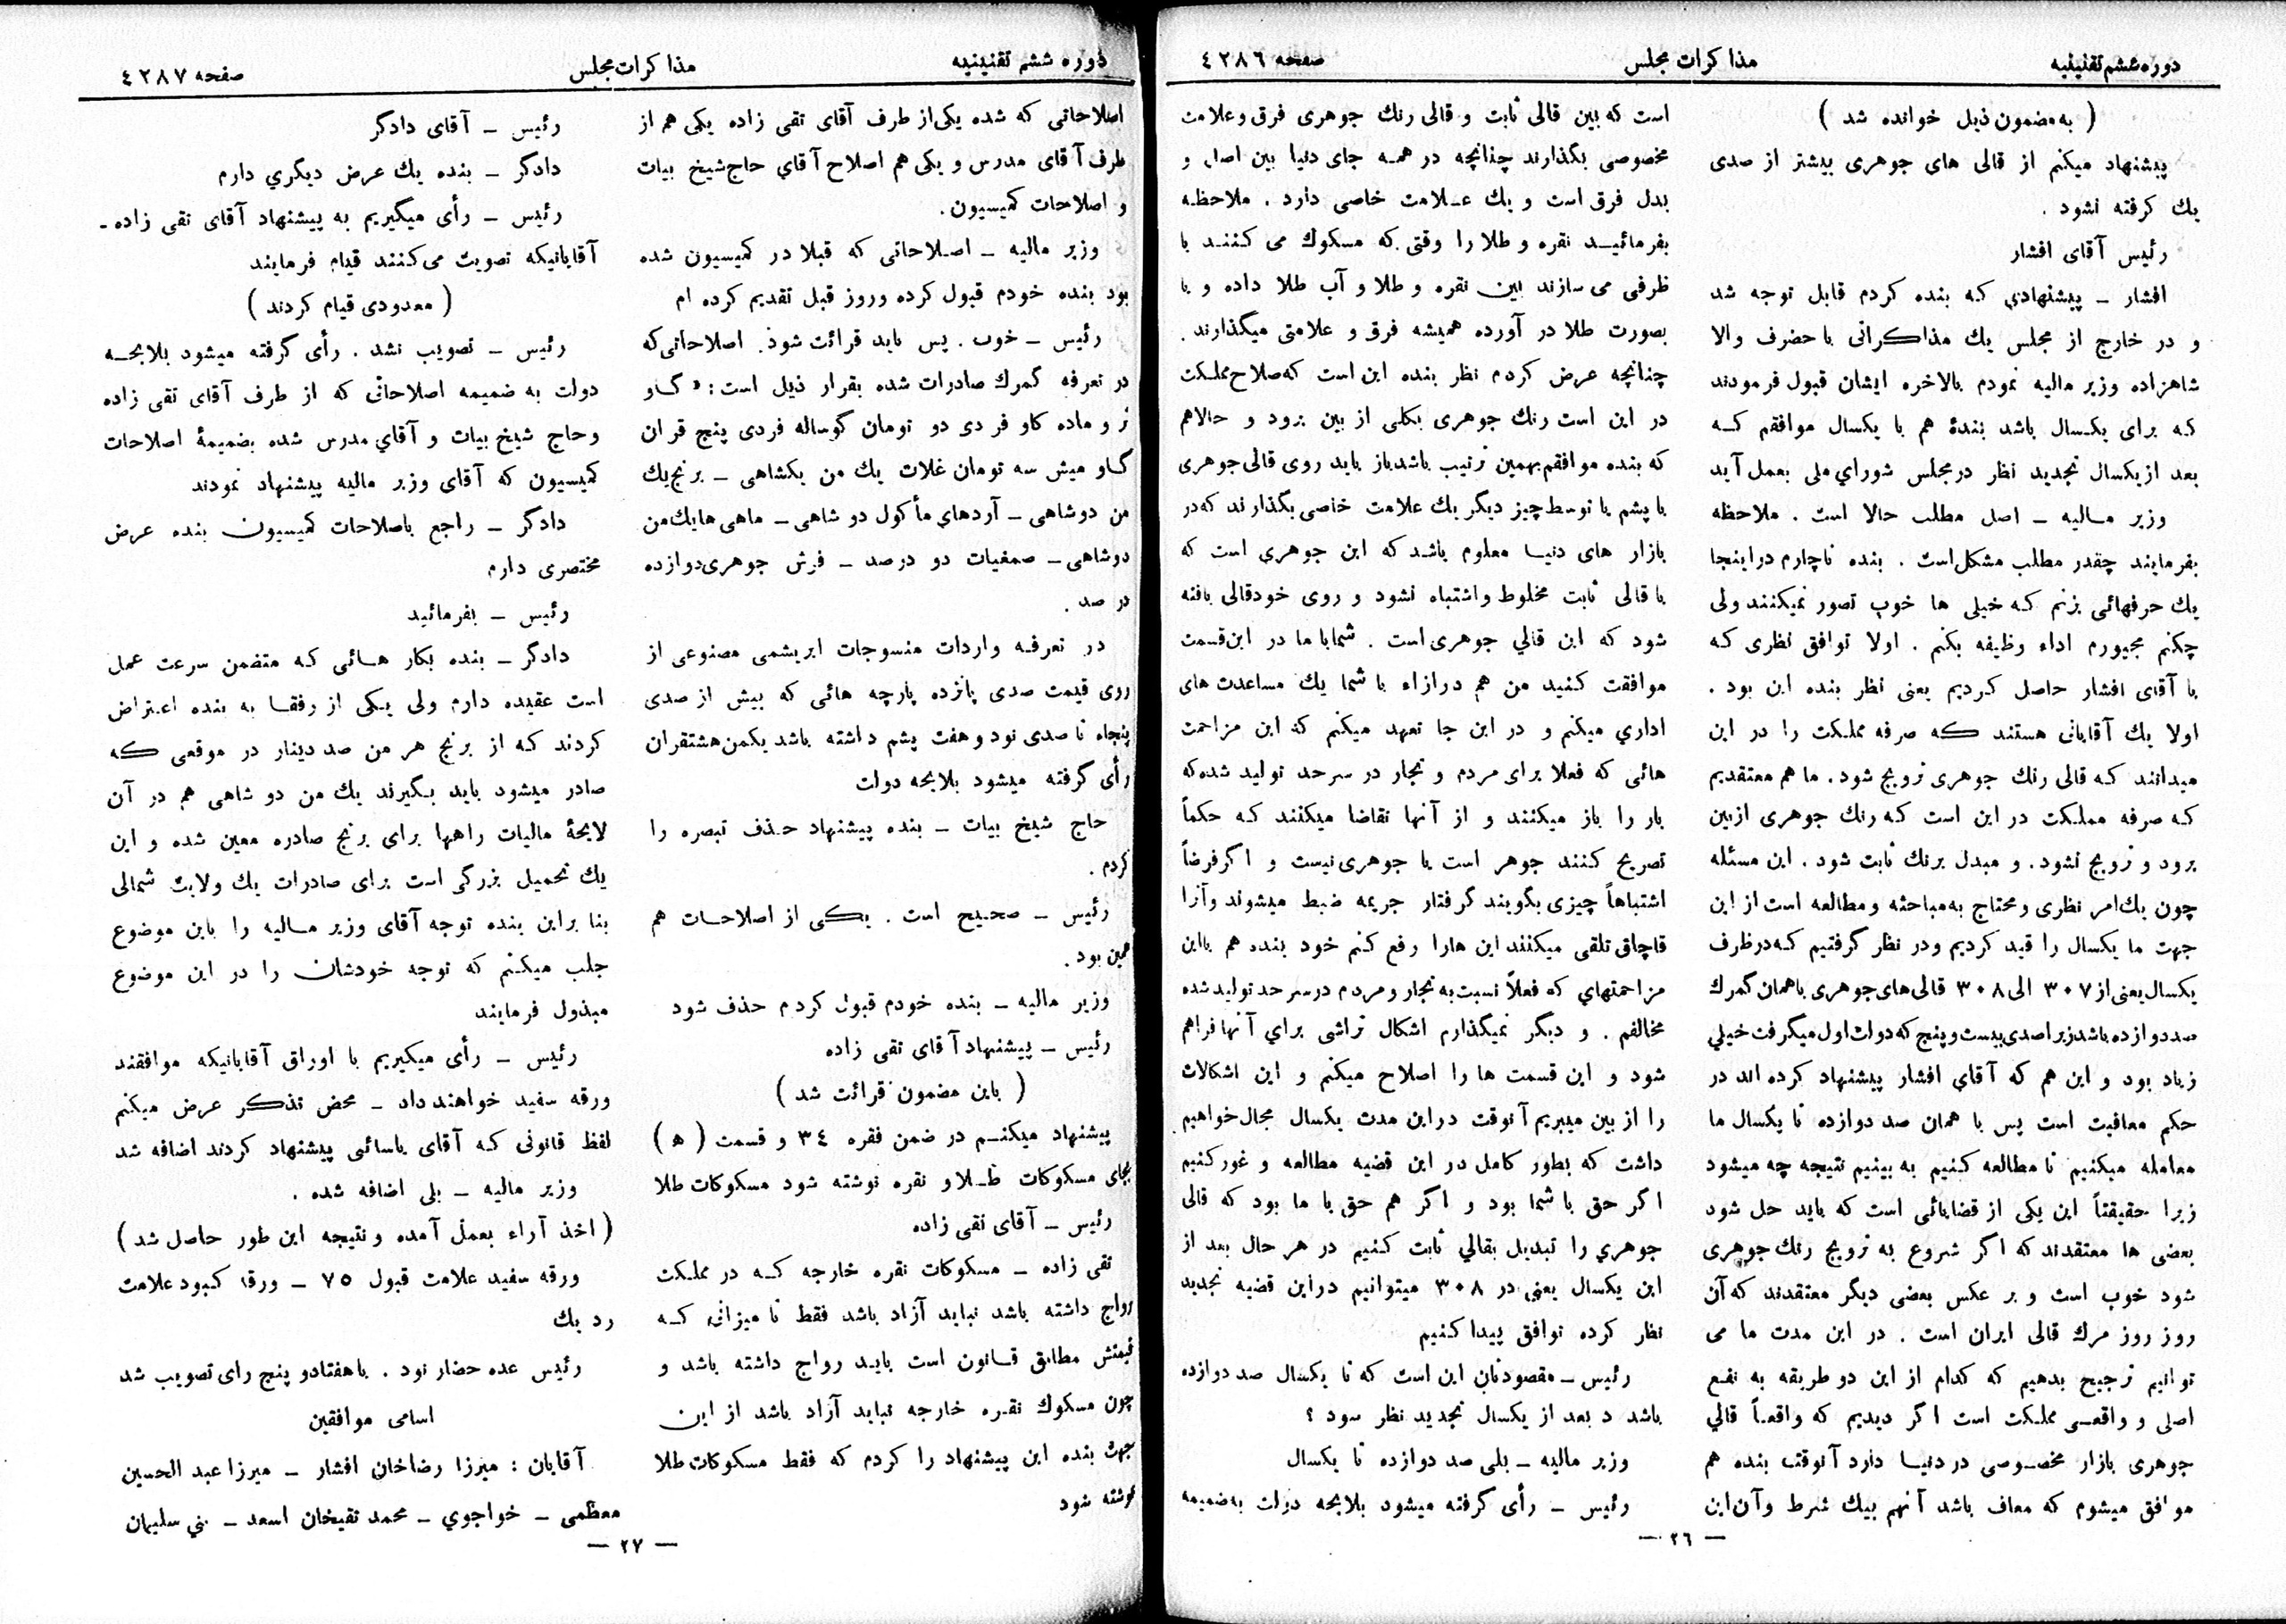 دوره ششم تقنینیه
مذاکرات مجلس
صفحه ٤٢٨٦
( به مضمون ذیل خوانده شد )
پیشنهاد میکنم از قالی های جوهری بیشتر از صدی
یك گرفته نشود .
رئیس آقای افشار
افشار ـ پیشنهادی که بنده کردم قابل توجه شد
و در خارج از مجلس یك مذاکراتی با حضرف والا
شاهزاده وزیر مالیه نمودم بالاخره ایشان قبول فرمودند
که برای یکسال باشد بندهٔ هم با یکسال موافقم که
بعد از یکسال تجدید نظر در مجلس شورای ملی بعمل آید
وزیر مالیه ـ اصل مطلب حالا است . ملاحظه
بفرمایند چقدر مطلب مشکل است . بنده ناچارم در اینجا
یك حرفهائی بزنم که خیلی ها خوب تصور نمیکنند ولی
چکنم مجبورم اداء وظیفه بکنم . اولا توافق نظری که
با آقای افشار حاصل کردیم یعنی نظر بنده این بود .
اولا یك آقایانی هستند که صرفه مملکت را در این
میدانند که قالی رنك جوهری ترویج شود . ما هم معتقدیم
که صرفه مملکت در این است که رنك جوهری ازبین
برود و ترویج نشود . و مبدل برنك ثابت شود . این مسئله
چون یك امر نظری و محتاج به مباحثه و مطالعه است از این
جهت ما یکسال را قید کردیم و در نظر گرفتیم که در ظرف
یکسال یعنی از ٣٠٧ الی ٣٠٨ قالی های جوهری با همان گمرك
صد دوازده باشد زیرا صدی بیست و پنج که دولت اول میگرفت خیلی
زیاد بود و این هم که آقای افشار پیشنهاد کرده اند در
حکم معافیت است پس با همان صد دوازده تا یکسال ما
معامله میکنیم تا مطالعه کنیم به بینیم نتیجه چه میشود
زیرا حقیقتاً این یکی از قضایائی است که باید حل شود
بعضی ها معتقدند که اگر شروع به ترویج رنك جوهری
شود خوب است و بر عکس بعضی دیگر معتقدند که آن
روز روز مرك قالی ایران است . در این مدت ما می
توانیم ترجیح بدهیم که کدام از این دو طریقه به نفع
اصلی و واقعی مملکت است اگر دیدیم که واقعاً قالی
جوهری بازار مخصوصی در دنیا دارد آنوقت بنده هم
موافق میشوم که معاف باشد آنهم بیك شرط و آن این
است که بین قالی ثابت و قالی رنك جوهری فرق و علامت
مخصوصی بگذارند چنانچه در همه جای دنیا بین اصل و
بدل فرق است و یك علامت خاصی دارد . ملاحظه
بفرمائید نقره و طلا را وقتی که مسکوك می کنند یا
ظرفی می سازند بین نقره و طلا و آب طلا داده و یا
بصورت طلا در آورده همیشه فرق و علامتی میگذارند .
چنانچه عرض کردم نظر بنده این است که صلاح مملکت
در این است رنك جوهری بکلی از بین برود و حالاهم
که بنده موافقم بهمین ترتیب باشد باز باید روی قالی جوهری
یا پشم یا توسط چیز دیگر یك علامت خاصی بگذارند که در
بازار های دنیا معلوم باشد که این جوهری است که
با قالی ثابت مخلوط و اشتباه نشود و روی خود قالی بافته
شود که این قالی جوهری است . شما با ما در این قسمت
موافقت کنید من هم در ازاء با شما یك مساعدت های
اداری میکنم و در این جا تعهد میکنم که این مزاحمت
هائی که فعلا برای مردم و تجار در سرحد تولید شده که
بار را باز میکنند و از آنها تقاضا میکنند که حکماً
تصریح کنند جوهر است یا جوهری نیست و اگر فرضاً
اشتباهاً چیزی بگویند گرفتار جریمه ضبط میشوند وآنرا
قاچاق تلقی میکنند این هارا رفع کنم خود بنده هم بااین
مزاحمتهای که فعلاً نسبت به تجار و مردم در سرحد تولید شده
مخالفم . و دیگر نمیگذارم اشکال تراشی برای آنها فراهم
شود و این قسمت ها را اصلاح میکنم و این اشکالات
را از بین میبریم آنوقت در این مدت یکسال مجال خواهیم
داشت که بطور کامل در این قضیه مطالعه و غور کنیم
اگر حق با شما بود و اگر هم حق با ما بود که قالی
جوهری را تبدیل بقالی ثابت کنیم در هر حال بعد از
این یکسال یعنی در ٣٠٨ میتوانیم در این قضیه تجدید
نظر کرده توافق پیدا کنیم
رئیس ـ مقصودتان این است که تا یکسال صد دوازده
باشد د بعد از یکسال تجدید نظر سود ؟
وزیر مالیه ـ بلی صد دوازده تا یکسال
رئیس ـ رأی گرفته میشود بلایحه دولت به ضمیمه
ـ ٢٦ ـ
دوره ششم تقنینیه
مذاکرات مجلس
صفحه ٤٢٨٧
اصلاحاتی که شده یکی از طرف آقای تقی زاده یکی هم از
طرف آقای مدرس و یکی هم اصلاح آقای حاج شیخ بیات
و اصلاحات کمیسیون .
وزیر مالیه ـ اصلاحاتی که قبلا در کمیسیون شده
بود بنده خودم قبول کرده وروز قبل تقدیم کرده ام
رئیس ـ خوب . پس باید قرائت شود . اصلاحاتی که
در تعرفه گمرك صادرات شده بقرار ذیل است : « گاو
نر و ماده کاو فردی دو تومان گوساله فردی پنج قران
گاو میش سه تومان غلات یك من یکشاهی ـ برنج یك
من دوشاهی ـ آردهای مأکول دو شاهی ـ ماهی ها یك من
دوشاهی ـ صمغیات دو درصد ـ فرش جوهری دوازده
در صد .
در تعرفه واردات منسوجات ابریشمی مصنوعی از
روی قیمت صدی پانزده پارچه هائی که بیش از صدی
پنجاه تا صدی نود و هفت پشم داشته باشد یکمن هشتقران
رأی گرفته میشود بلایحه دولت
حاج شیخ بیات ـ بنده پیشنهاد حذف تبصره را
کردم .
رئیس ـ صحیح است . یکی از اصلاحات هم
همین بود .
وزیر مالیه ـ بنده خودم قبول کردم حذف شود
رئیس ـ پیشنهاد آقای تقی زاده
( باین مضمون قرائت شد )
پیشنهاد میکنم در ضمن فقره ٣٤ و قسمت ( ه )
بجای مسکوکات طلا و نقره نوشته شود مسکوکات طلا
رئیس ـ آقای تقی زاده
تقی زاده ـ مسکوکات نقره خارجه که در مملکت
رواج داشته باشد نباید آزاد باشد فقط تا میزانی که
قیمتش مطابق قانون است باید رواج داشته باشد و
چون مسکوك نقره خارجه نباید آزاد باشد از این
جهت بنده این پیشنهاد را کردم که فقط مسکوکات طلا
نوشته شود
رئیس ـ آقای دادگر
دادگر ـ بنده یك عرض دیگری دارم
رئیس ـ رأی میگیریم به پیشنهاد آقای تقی زاده ـ
آقایانیکه تصویب می کنند قیام فرمایند
( معدودی قیام کردند )
رئیس ـ تصویب نشد . رأی گرفته میشود بلایحه
دولت به ضمیمه اصلاحاتی که از طرف آقای تقی زاده
و حاج شیخ بیات و آقای مدرس شده بضمیمهٔ اصلاحات
کمیسیون که آقای وزیر مالیه پیشنهاد نمودند
دادگر ـ راجع باصلاحات کمیسیون بنده عرض
مختصری دارم
رئیس ـ بفرمائید
دادگر ـ بنده بکار هائی که متضمن سرعت عمل
است عقیده دارم ولی یکی از رفقا به بنده اعتراض
کردند که از برنج هر من صد دینار در موقعی که
صادر میشود باید بگیرند یك من دو شاهی هم در آن
لایحهٔ مالیات راهها برای برنج صادره معین شده و این
یك تحمیل بزرگی است برای صادرات یك ولایت شمالی
بنا براین بنده توجه آقای وزیر مالیه را باین موضوع
جلب میکنم که توجه خودشان را در این موضوع
مبذول فرمایند
رئیس ـ رأی میگیریم با اوراق آقایانیکه موافقند
ورقه سفید خواهند داد ـ محض تذکر عرض میکنم
لفظ قانونی که آقای یاسائی پیشنهاد کردند اضافه شد
وزیر مالیه ـ بلی اضافه شده .
( اخذ آراء بعمل آمده و نتیجه این طور حاصل شد )
ورقه سفید علامت قبول ٧٥ ـ ورقه کبود علامت
رد یك
رئیس عده حضار نود . باهفتادو پنج رای تصویب شد
اسامی موافقین
آقایان : میرزا رضاخان افشار ـ میرزا عبد الحسین
معظمی ـ خواجوی ـ محمد تقیخان اسعد ـ بنی سلیمان
ـ ٢٧ ـ